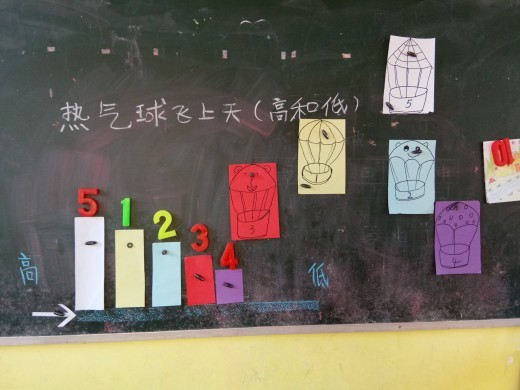 热气球飞上天（高和低）
5
1
3
2
4
5 1 2 3 4
高
低